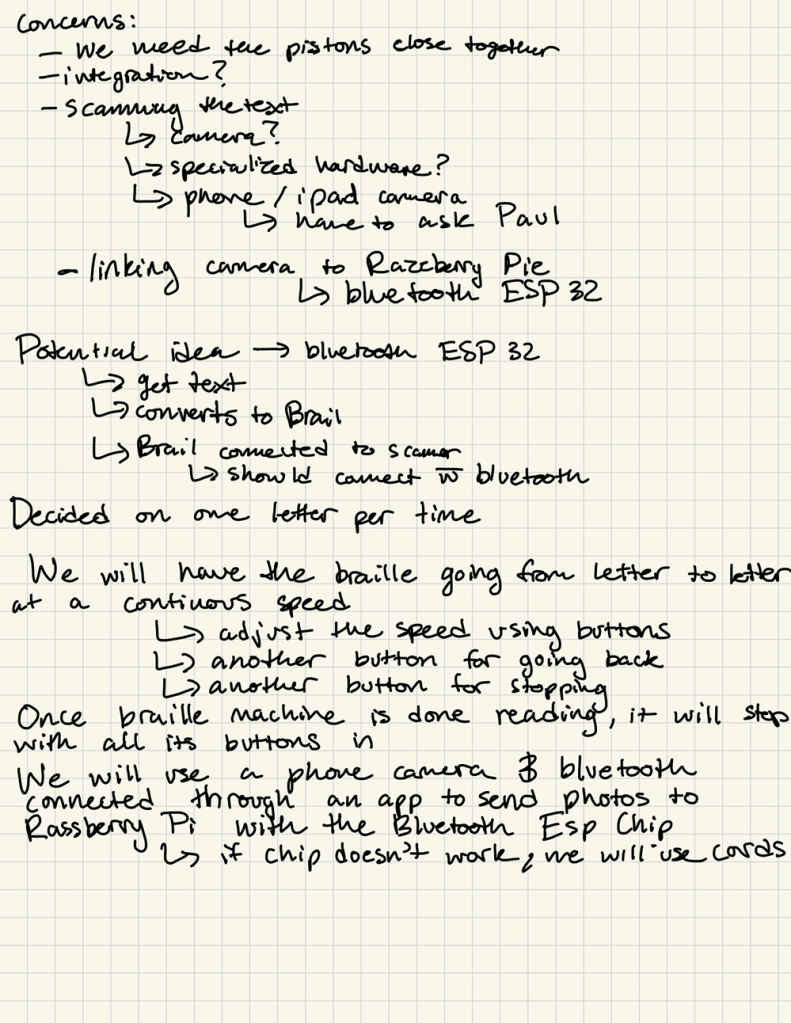 Concerns:
- We need the pistons close together
- integration?
- Scanning the text
↳ camera?
↳ specialized hardware?
↳ phone / ipad camera
↳ have to ask Paul
- linking camera to Razcberry Pie
↳ bluetooth ESP 32
Potential idea → bluetooth ESP 32
↳ get text
↳ converts to Brail
↳ Brail connected to scanner
↳ should connect w bluetooth
Decided on one letter per time
We will have the braille going from letter to letter
at a continous speed
↳ adjust the speed using buttons
↳ another button for going back
↳ another button for stopping
Once braille machine is done reading, it will stop
with all its buttons in
We will use a phone camera & bluetooth
connected through an app to send photos to
Rassberry Pi with the Bluetooth Esp Chip
↳ if chip doesn't work, we will use cords